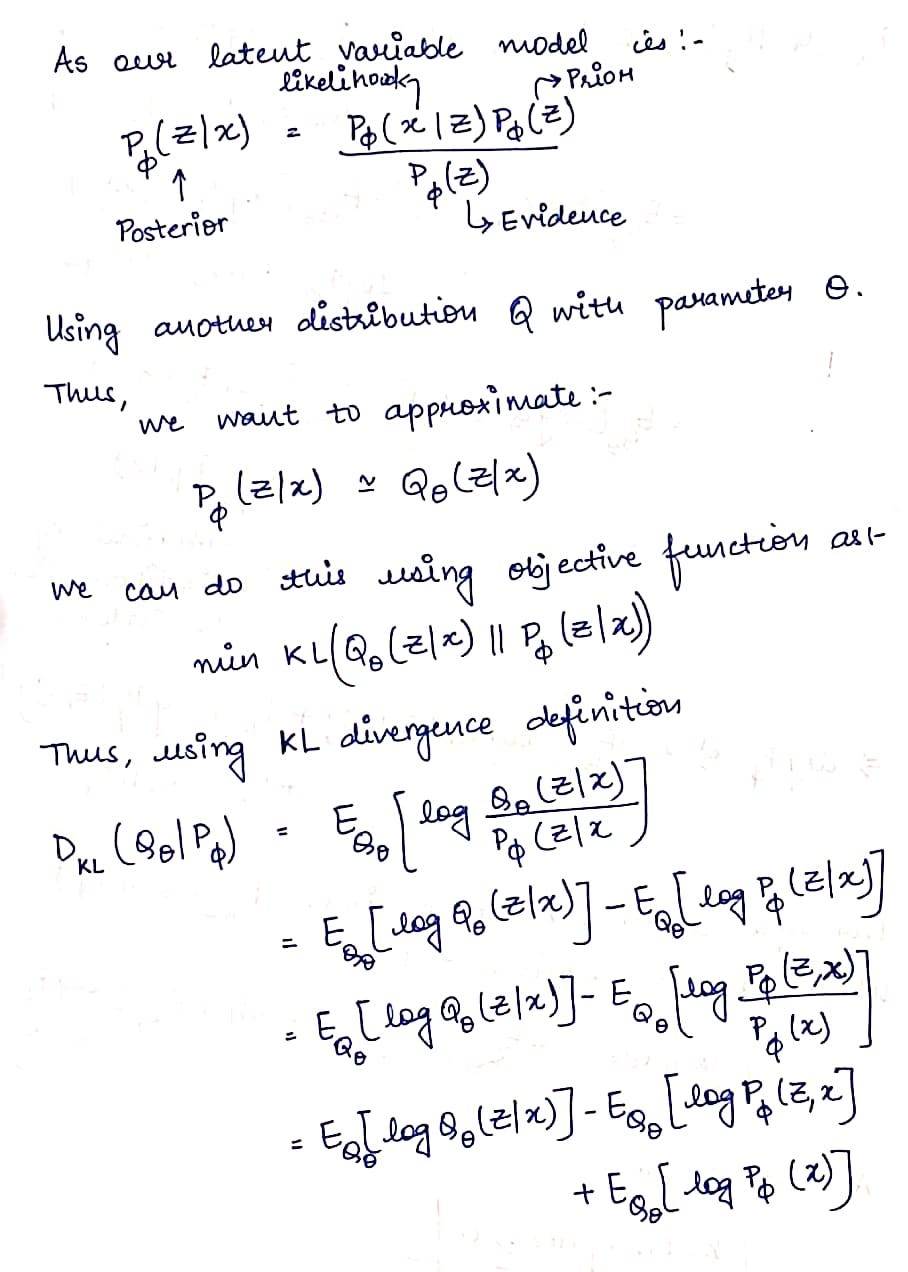 As our latent variable model is :-
likelihood → Prior
P_ϕ(z|x) = P_ϕ(x|z) P_ϕ(z) / P_ϕ(z)
↑ Posterior
↳ Evidence
Using another distribution Q with parameter θ.
Thus,
we want to approximate :-
P_ϕ(z|x) ≃ Q_θ(z|x)
we can do this using objective function as :-
min KL(Q_θ(z|x) || P_ϕ(z|x))
Thus, using KL divergence definition
D_KL(Q_θ|P_ϕ) = E_Q_θ[log Q_θ(z|x) / P_ϕ(z|x]
= E_Q_θ[log Q_θ(z|x)] - E_Q_θ[log P_ϕ(z|x)]
= E_Q_θ[log Q_θ(z|x)] - E_Q_θ[log P_ϕ(z,x) / P_ϕ(x)]
= E_Q_θ[log Q_θ(z|x)] - E_Q_θ[log P_ϕ(z,x]
+ E_Q_θ[log P_ϕ(x)]